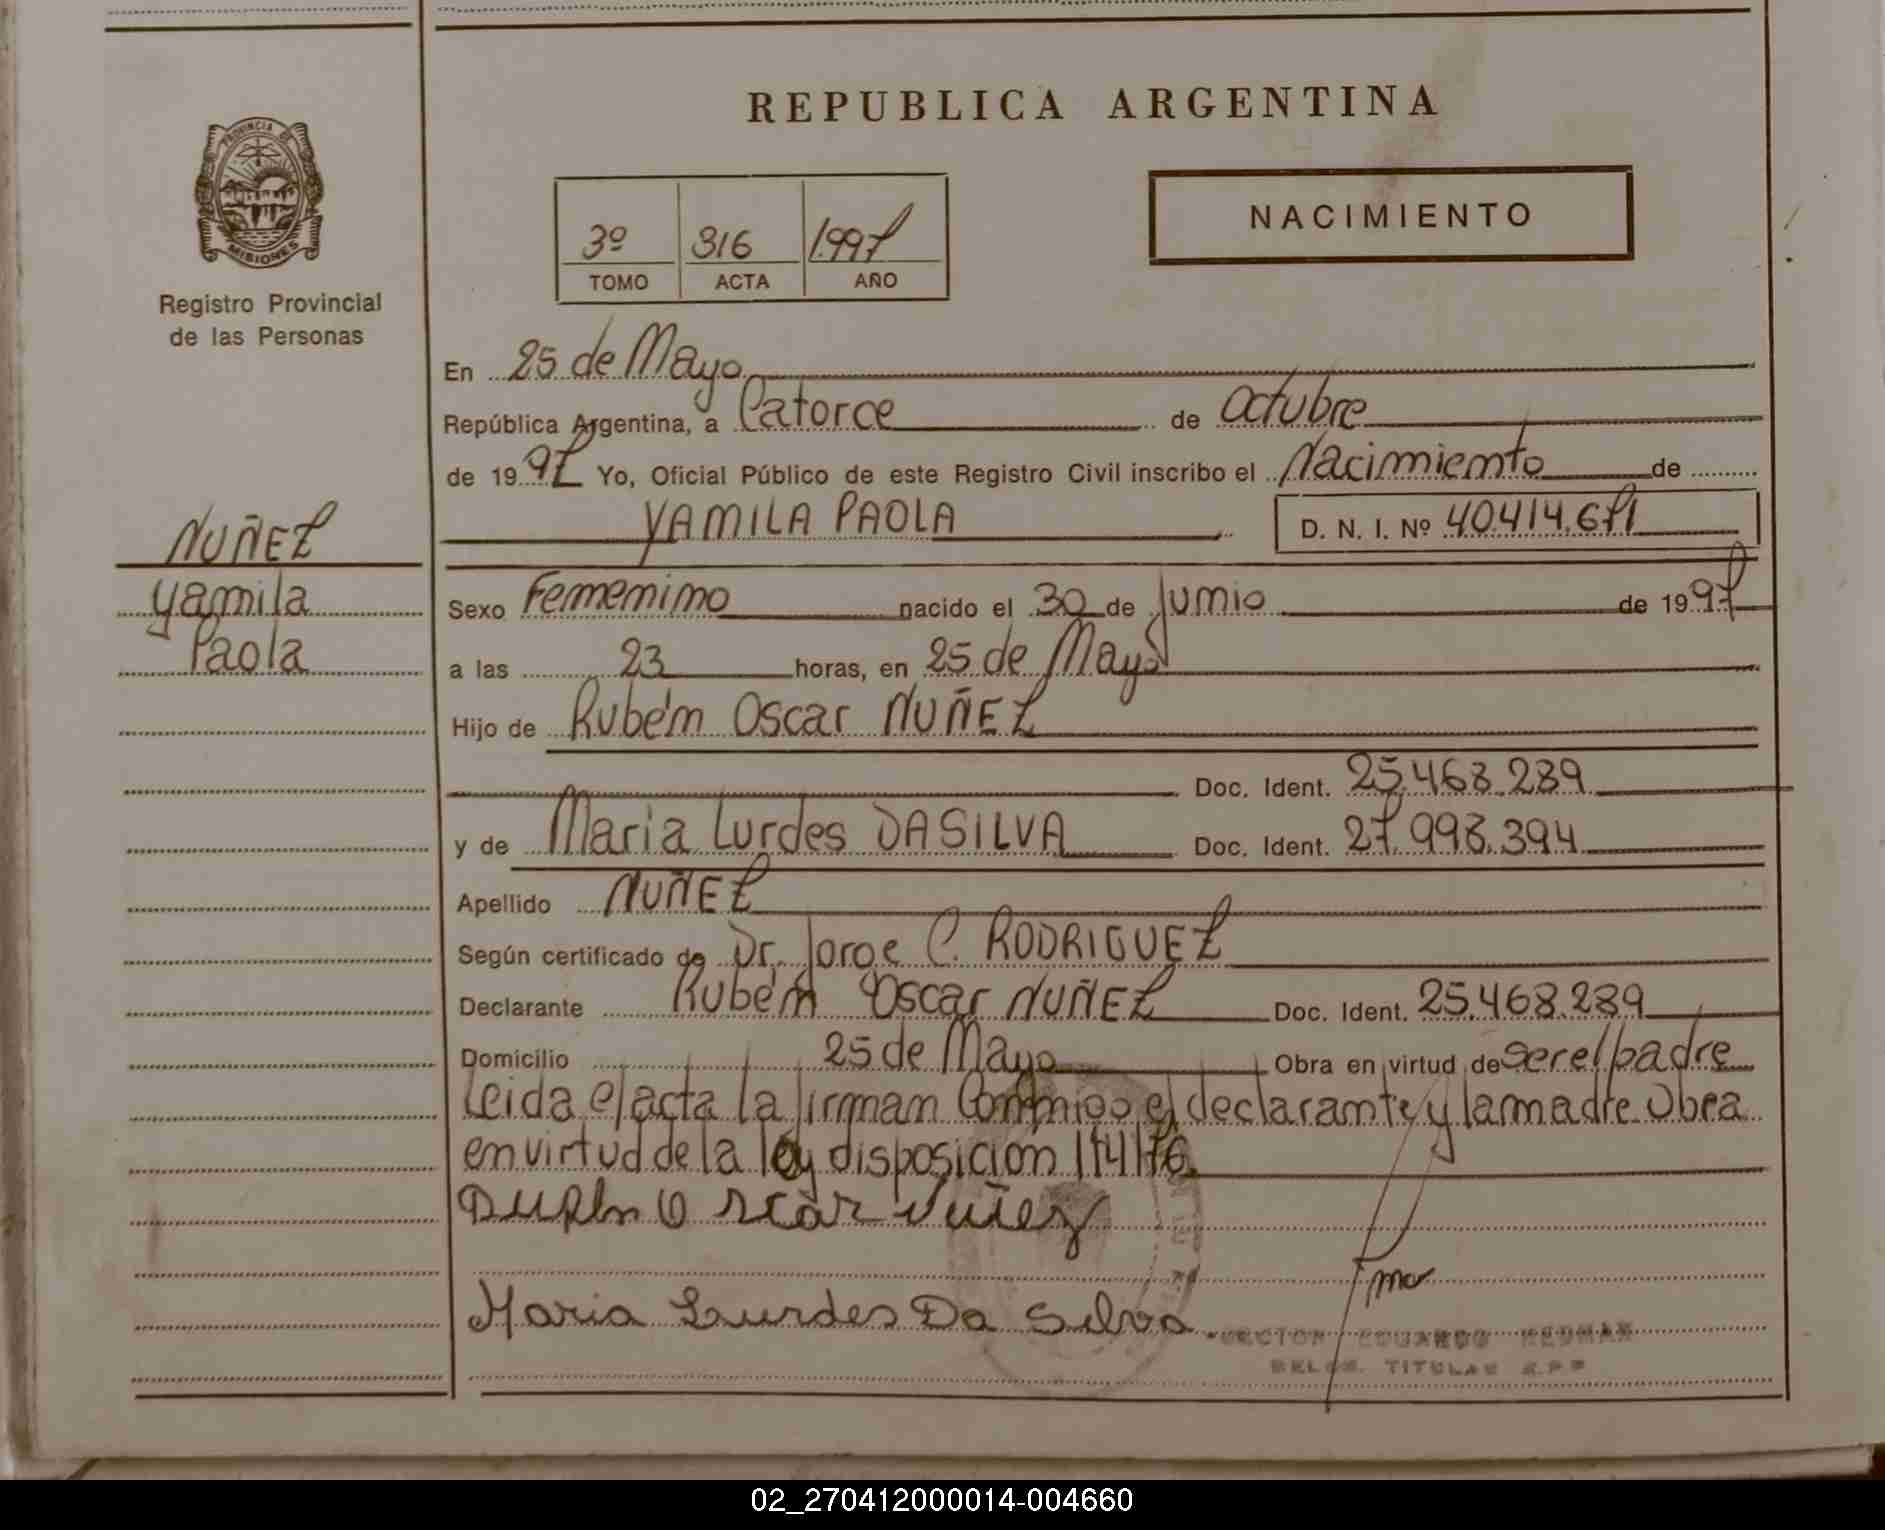 REPUBLICA ARGENTINA
PROVINCIA DE
MISIONES
Registro Provincial
de las Personas
3º 316 1997
TOMO ACTA AÑO
NACIMIENTO
En 25 de Mayo
República Argentina, a Catorce de Octubre
de 1997 Yo, Oficial Público de este Registro Civil inscribo el Nacimiento de
YAMILA PAOLA D. N. I. Nº 40.414.671
NUÑEZ
Yamila
Paola
Sexo Femenino nacido el 30 de Junio de 1997
a las 23 horas, en 25 de Mayo
Hijo de Rubén Oscar NUÑEZ
Doc. Ident. 25.468.289
y de Maria Lurdes DASILVA Doc. Ident. 27.998.394
Apellido NUÑEZ
Según certificado de Dr. Jorge C. RODRIGUEZ
Declarante Rubén Oscar NUÑEZ Doc. Ident. 25.468.289
Domicilio 25 de Mayo Obra en virtud de ser el padre
Leida el acta la firman Conmigo el declarante y la madre Obra
en virtud de la ley disposición 174/76
Oscar Nuñez
Maria Lurdes Da Silva
HECTOR EDUARDO
TITULAR
02_270412000014-004660